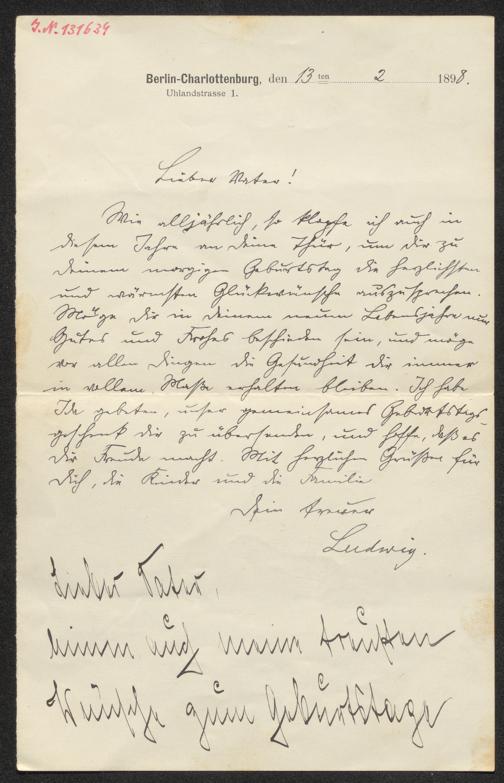 J.N. 131634
Berlin-Charlottenburg, den 13ten 2 1898.
Uhlandstrasse 1.
Lieber Vater!
Wie alljährlich, so klopfe ich auch in
diesem Jahre an deine Thür, um Dir zu
deinem morgigen Geburtstag die herzlichsten
und wärmsten Glückwünsche auszusprechen.
Möge dir in deinem neuen Lebensjahre nur
Gutes und Frohes beschieden sein, und möge
vor allen Dingen die Gesundheit dir immer
in vollem Maße erhalten bleiben. Ich habe
Ida gebeten, unser gemeinsames Geburtstags-
geschenk dir zu übersenden, und hoffe, daß es
dir Freude macht. Mit herzlichen Grüßen für
dich, die Kinder und die Familie
Dein treuer
Ludwig.
Lieber Vater,
nimm auch meine treusten
Wünsche zum Geburtstage